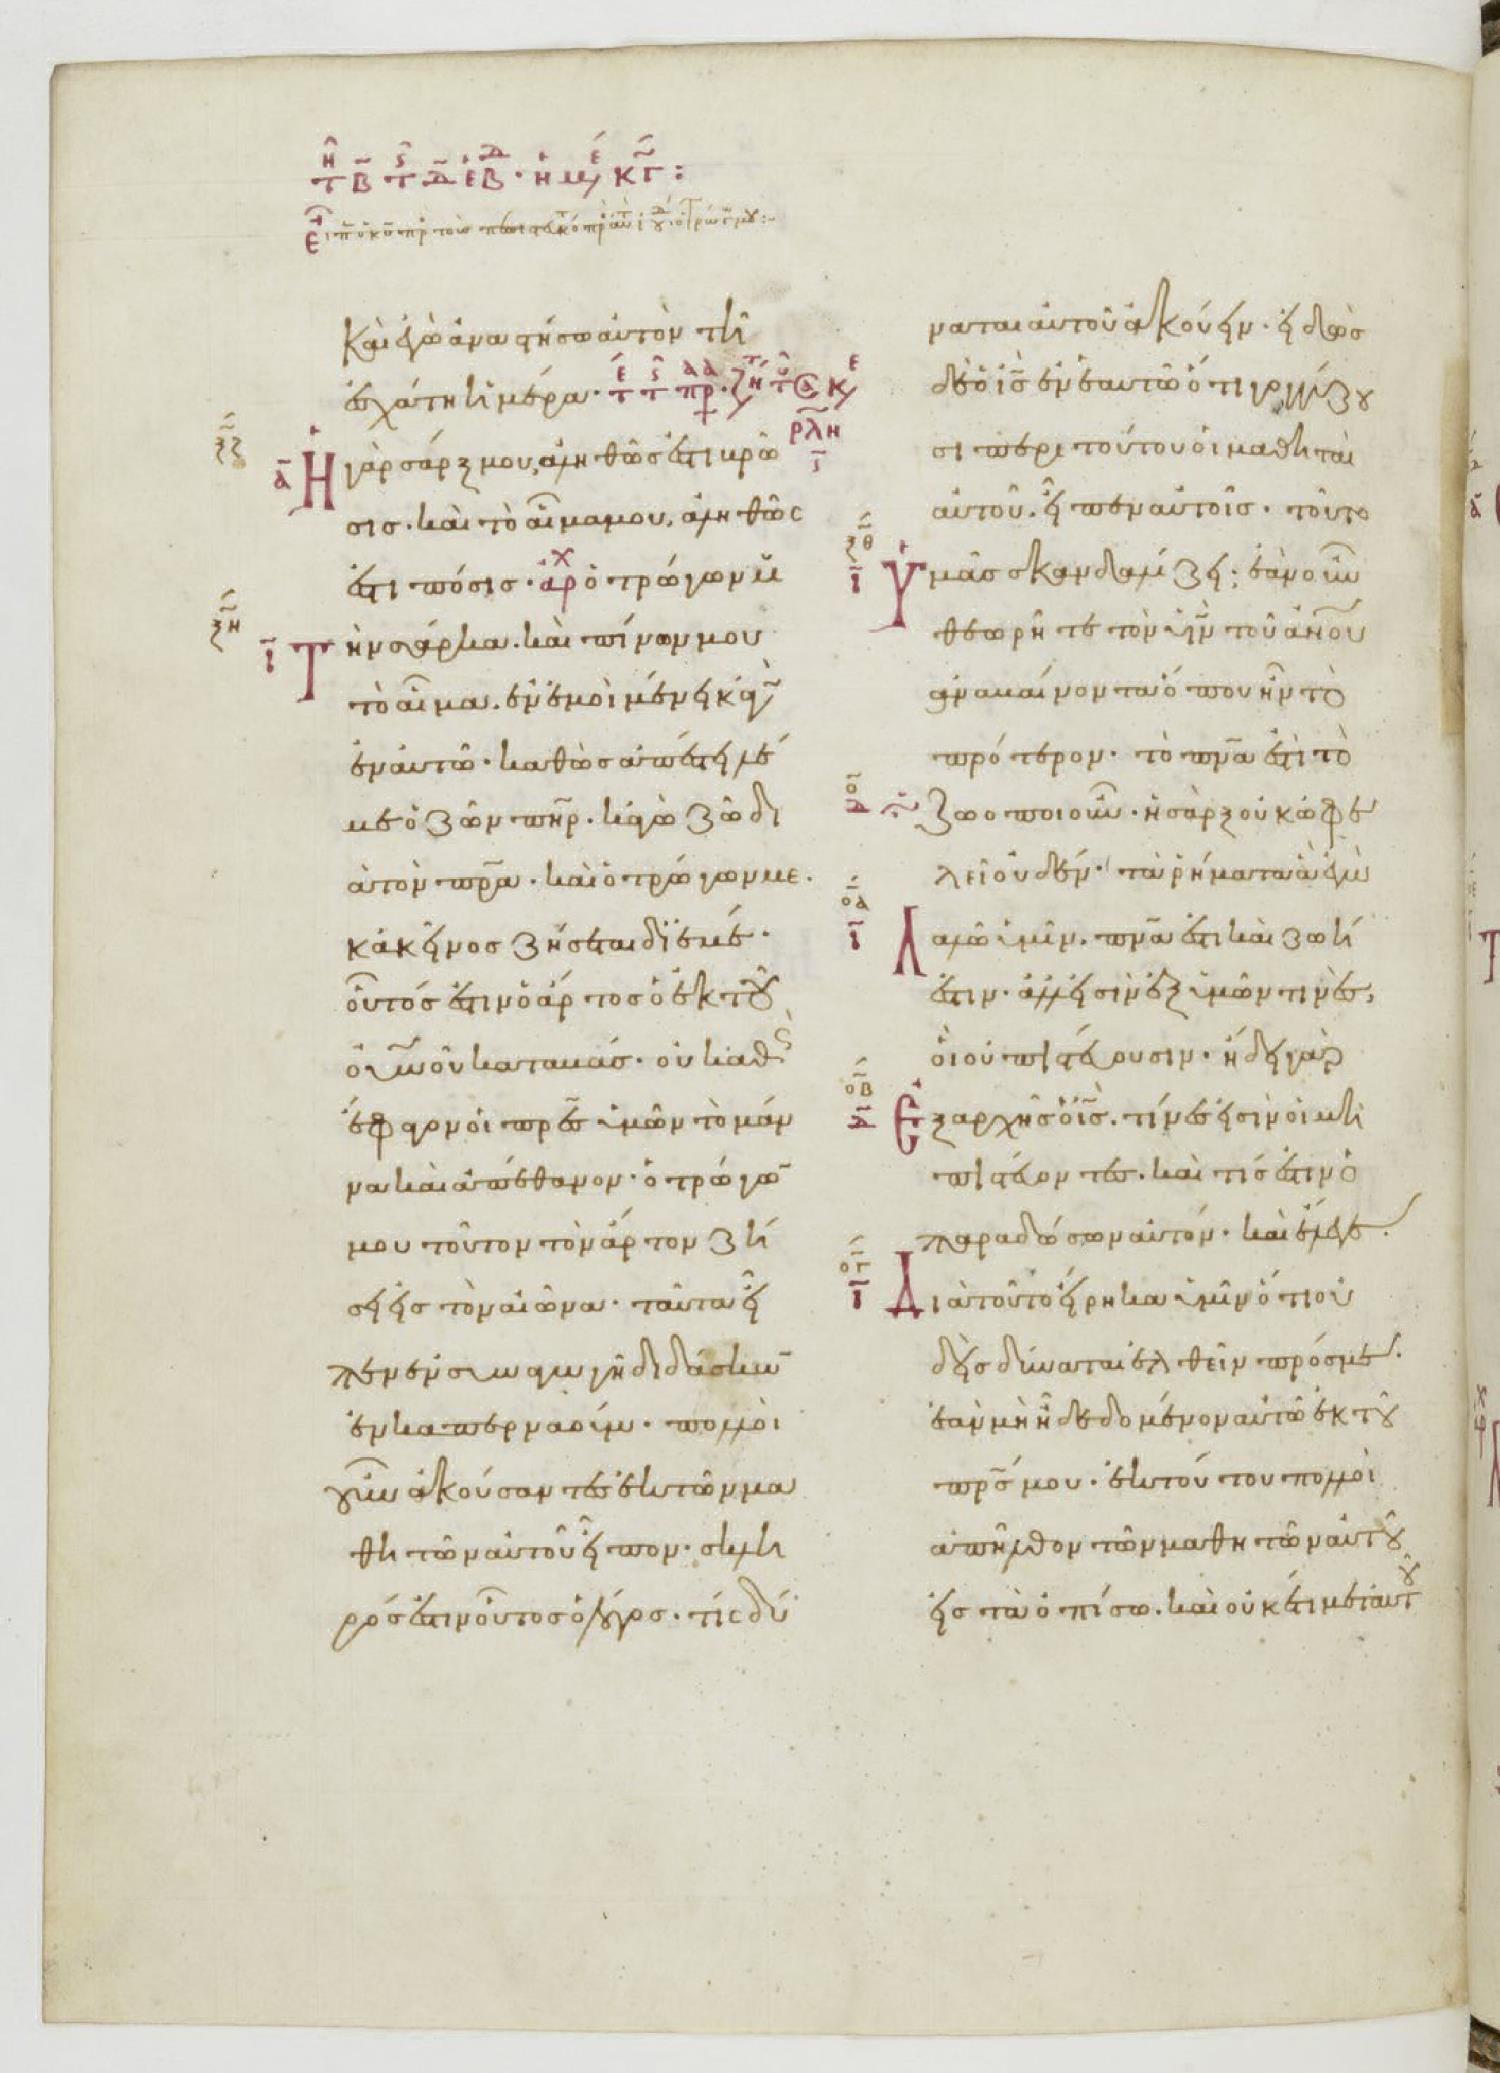 καὶ ἐγὼ ἀναστήσω αὐτὸν τῆ
ἐσχάτη ἡμέρα·
ξζ
α
Ἡ γὰρ σάρξ μου, ἀληθῶς ἐστι βρῶ
σις· καὶ τὸ αἷμα μου, ἀληθῶς
ἐστι πόσις· ἀρχ ὁ τρώγων μου
ξη
ι
Τὴν σάρκα. καὶ πίνων μου
τὸ αἷμα. ἐν ἐμοὶ μένει κἀγὼ
ἐν αὐτῶ· καθὼς ἀπέστειλέ
με ὁ ζῶν πηρ. κἀγὼ ζῶ δι
ὰ τὸν πρα· καὶ ὁ τρώγων με·
κἀκεῖνος ζήσεται δι ἐμέ·
οὗτός ἐστιν ὁ ἄρτος ὁ ἐκ τοῦ
οὐνοῦ καταβάς· οὐ καθὼς
ἔφαγον οἱ πρες ὑμῶν τὸ μάν
να καὶ ἀπέθανον· ὁ τρώγων
μου τοῦτον τὸν ἄρτον ζή
σει εἰς τὸν αἰῶνα· ταῦτα εἶ
πεν ἐν συναγωγῆ διδάσκων
ἐν καπερναούμ· πολλοὶ
οὖν ἀκούσαντες ἐκ τῶν μα
θητῶν αὐτοῦ εἶπον· σκλη
ρός ἐστιν οὗτος ὁ λόγος· τίς δύ
ναται αὐτοῦ ἀκούειν· εἰδὼς
δὲ ὁ ις ἐν ἑαυτῶ ὅτι γογγύζου
σι περὶ τούτου οἱ μαθηταὶ
αὐτοῦ. εἶπεν αὐτοῖς· τοῦτο
ξθ
ι
Ὑμᾶς σκανδαλίζει; ἐὰν οὖν
θεωρῆτε τὸν υἱὸν τοῦ ἀνου
ἀναβαίνοντα ὅπου ἦν τὸ
πρότερον· τὸ πνα ἐστὶ τὸ
ο
δ
ζωοποιοῦν· ἡ σὰρξ οὐκ ὠφε
λεῖ οὐδέν· τὰ ῥήματα ἃ ἐγὼ
οα
ι
Λαλῶ ὑμῖν. πνα ἐστι καὶ ζωή
ἐστιν· ἀλλ εἰσὶν ἐξ ὑμῶν τινὲς,
οἳ οὐ πιστεύουσιν· ἤδει γὰρ
οβ
δ
Ἐξ ἀρχῆς ὁ ις. τίνες εἰσὶν οἱ μὴ
πιστεύοντες. καὶ τίς ἐστιν ὁ
παραδώσων αὐτόν· καὶ ἔλεγε·
ογ
ι
Διὰ τοῦτο εἴρηκα ὑμῖν ὅτι οὐ
δεὶς δύναται ἐλθεῖν πρός με·
ἐὰν μὴ ἦ δεδομένον αὐτῶ ἐκ τοῦ
πρς μου· ἐκ τούτου πολλοὶ
ἀπῆλθον τῶν μαθητῶν αὐτοῦ
εἰς τὰ ὀπίσω. καὶ οὐκ ἔτι μετ αὐτοῦ